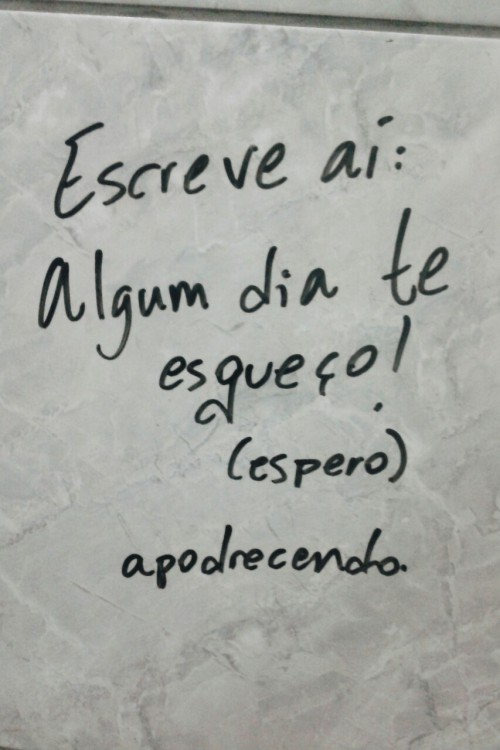 Escreve aí:
Algum dia te
esqueço!
(espero)
apodrecendo.